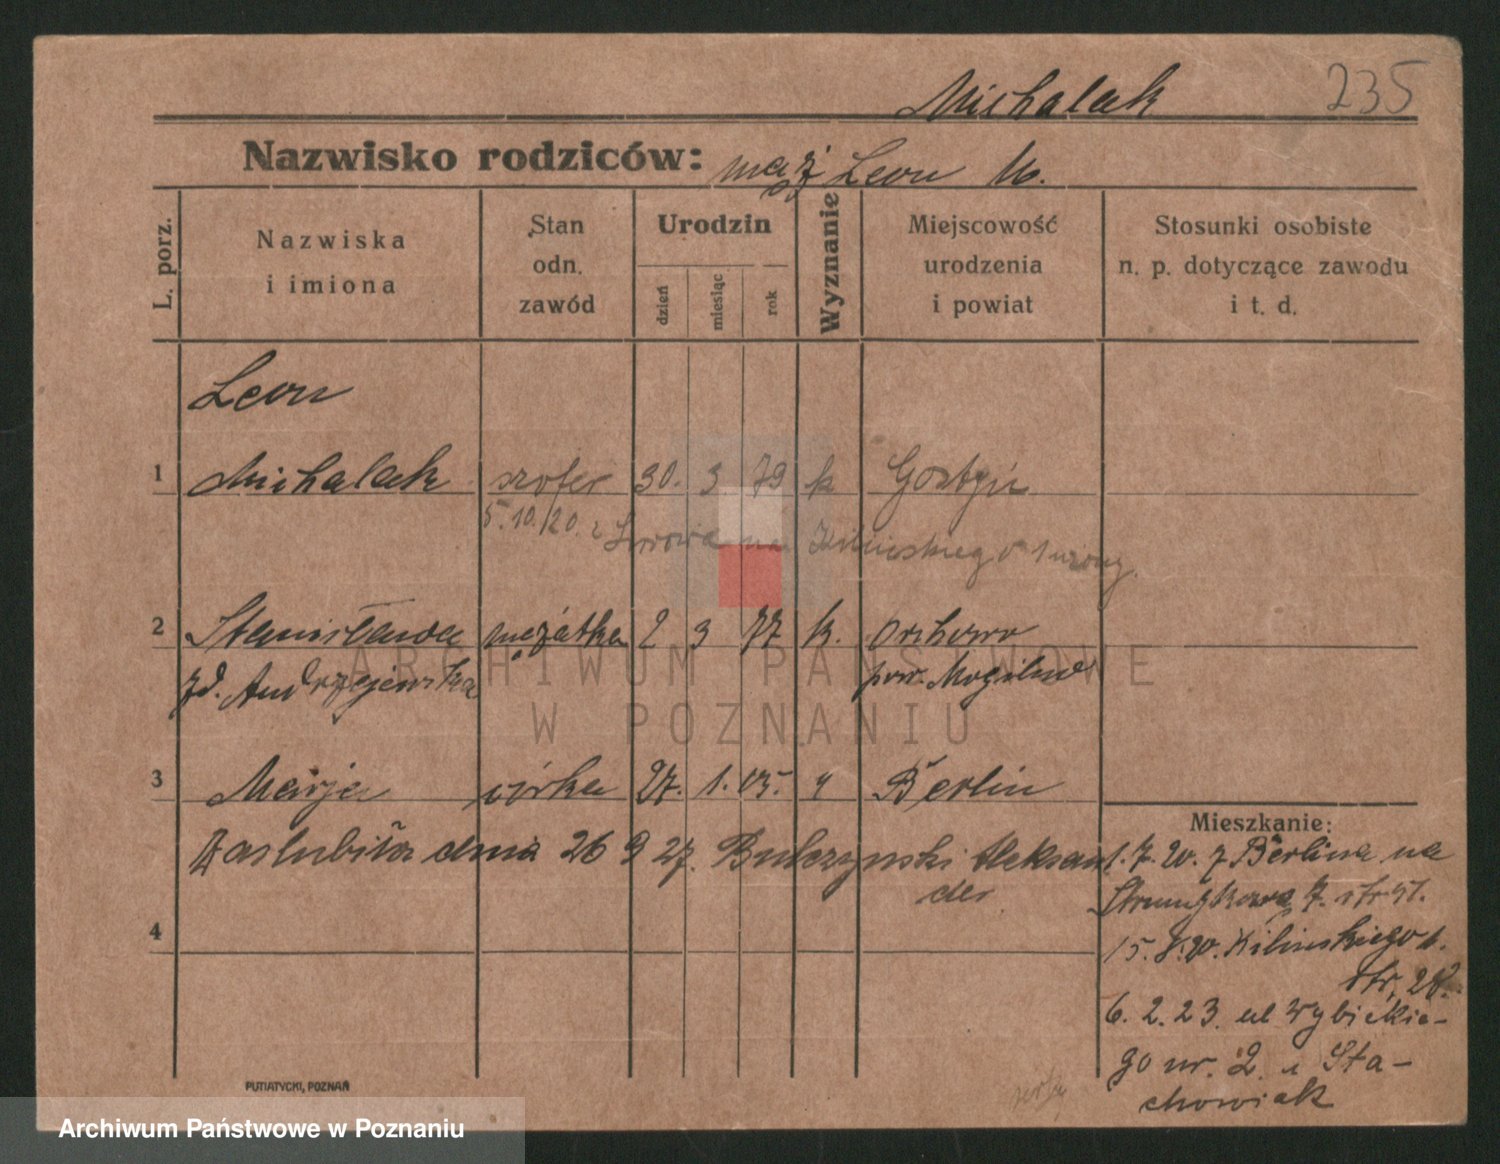 Michalak 235
Nazwisko rodziców: mąż Leon M.
L. porz.
Nazwiska
i imiona
Stan
odn.
zawód
Urodzin
dzień
miesiąc
rok
Wyznanie
Miejscowość
urodzenia
i powiat
Stosunki osobiste
n. p. dotyczące zawodu
i t. d.
Leon
1 Michalak szofer 30. 3 79 k Gostyń
5.10.20. z Lwowa na Kilińskiego 1
2 Stanisława mężatka 2 3 77 k. Orchowo
zd. Andrzejewska pow. Mogilno
3 Marja córka 27. 1. 05. Berlin
Zaslubiła dnia 26 9 27. Bulczynski Aleksan
der
4
Mieszkanie:
1. 7. 20. z Berlina na
Strumykową 7.
15. 8. 20. Kilinskiego 1.
str. 28.
6. 2. 23. ul Wybickie-
go nr. 2. u Sta-
chowiak
PUTIATYCKI, POZNAŃ
ARCHIWUM PAŃSTWOWE
W POZNANIU
Archiwum Państwowe w Poznaniu